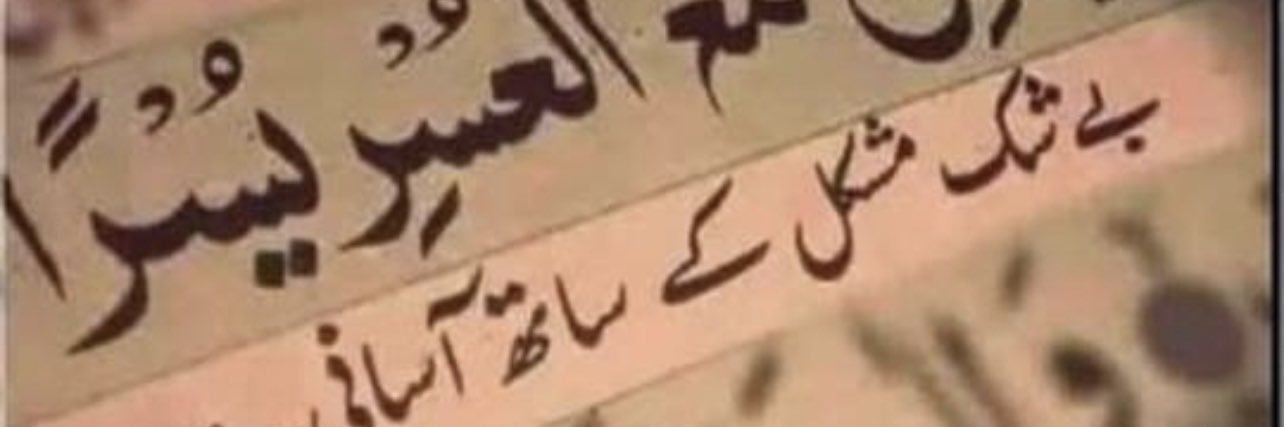 إن مع العسرِ يُسُرًا
بے شک مشکل کے ساتھ آسانی